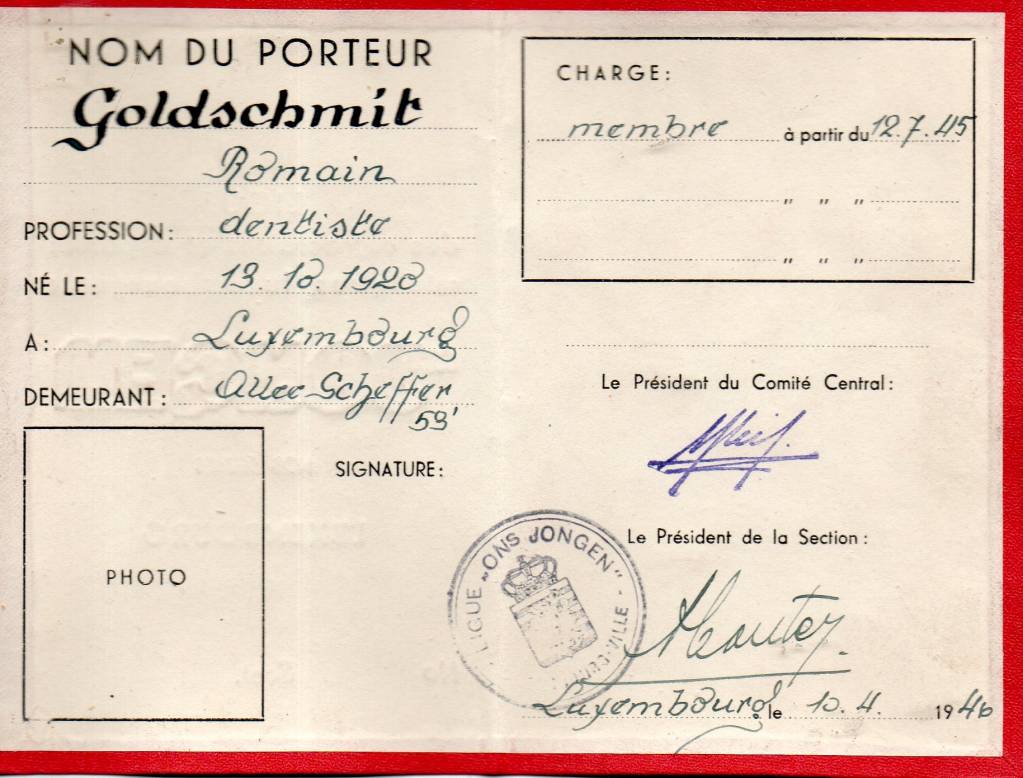 NOM DU PORTEUR
Goldschmit
Romain
PROFESSION: dentiste
NÉ LE: 13. 10. 1920
A: Luxembourg
DEMEURANT: Allee Scheffer
53'
PHOTO
SIGNATURE:
CHARGE:
membre à partir du 12.7.45
" " "
" " "
Le Président du Comité Central:
Le Président de la Section:
LIGUE „ONS JONGEN"
VILLE
Luxembourg, le 10. 4. 1946